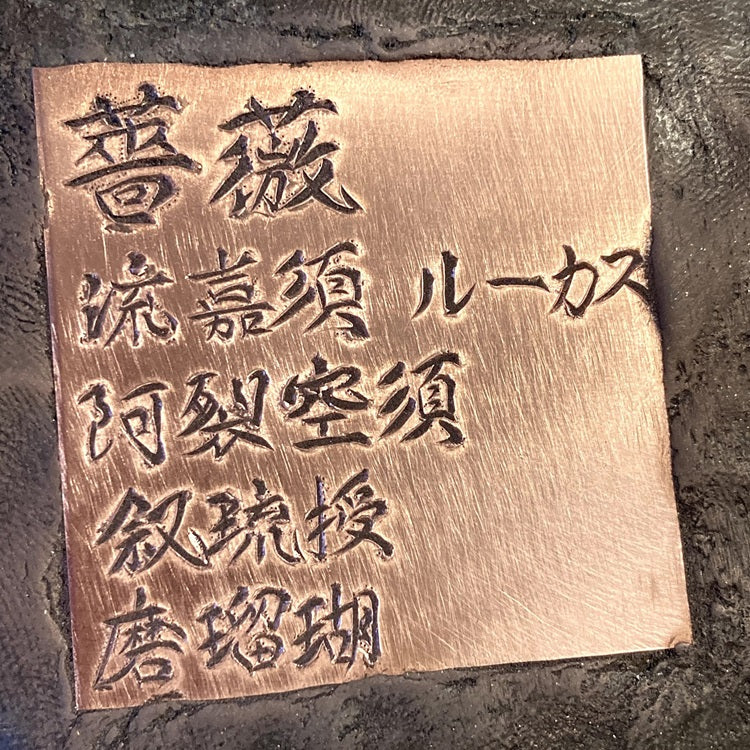 薔薇
流嘉須 ルーカス
阿裂空須
叙琉授
磨瑠瑚